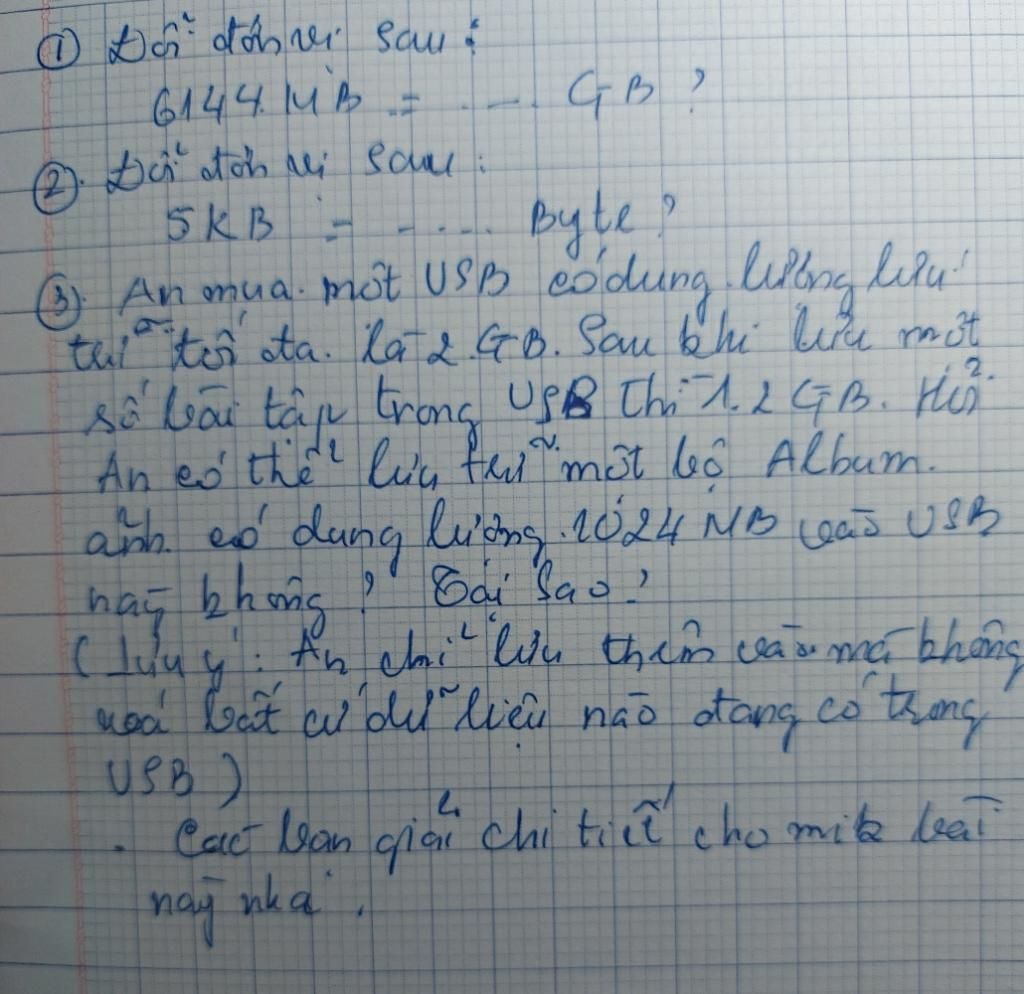 ① Đổi đơn vị sau :
6144 MB = .... GB ?
② Đổi đơn vị sau :
5KB = ..... Byte ?
③ An mua một USB có dung lượng lưu
trữ tối đa là 2 GB. Sau khi lưu một
số bài tập trong USB thì 1.2 GB. Hỏi
An có thể lưu trữ một bộ Album
ảnh có dung lượng 1024 MB vào USB
này không ? Tại sao ?
( Lưu ý : An chỉ lưu thêm vào mà không
xoá bất cứ dữ liệu nào đang có trong
USB )
. Các bạn giải chi tiết cho mik bài
này nha .